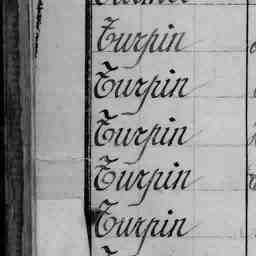 Turpin
Turpin
Turpin
Turpin
Turpin